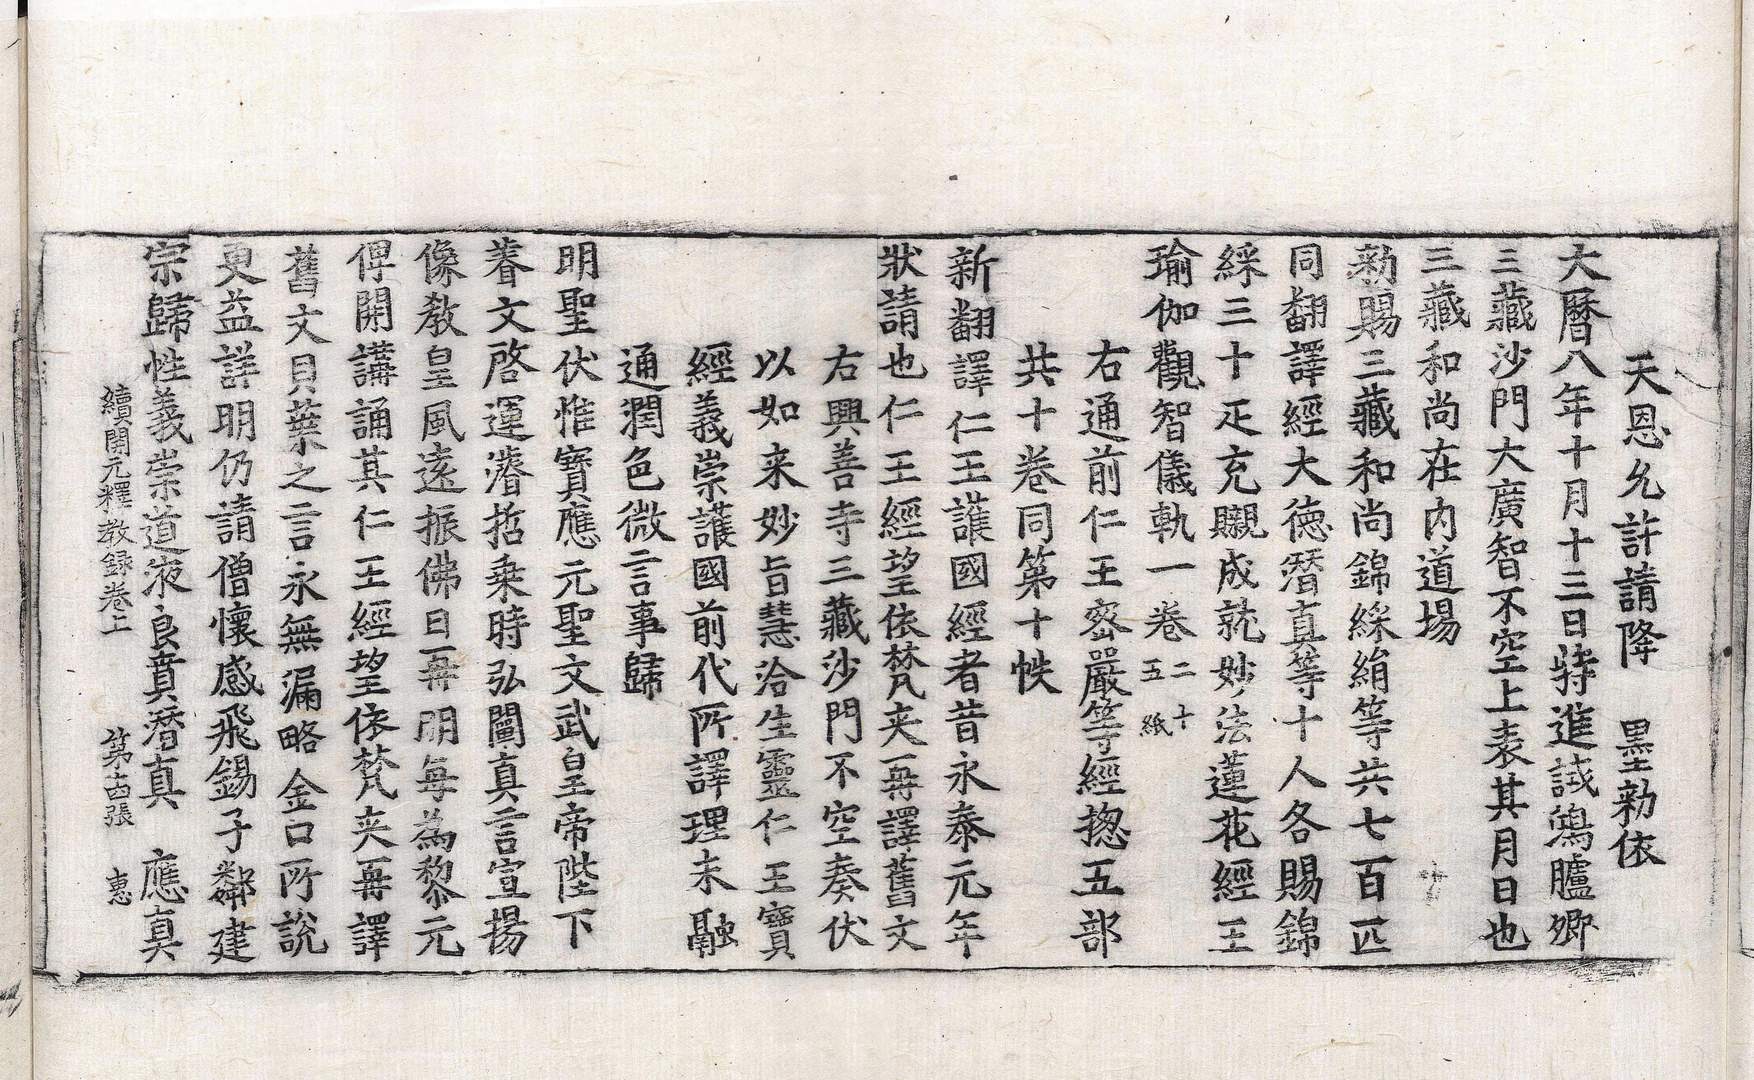 天恩允許請降　墨勑依
大曆八年十月十三日特進試鴻臚卿
三藏沙門大廣智不空上表其月日也
三藏和尚在内道場
勑賜三藏和尚錦綵絹等共七百匹
同翻譯經大德潛真等十人各賜錦
綵三十疋充瞡成就妙法蓮花經王
瑜伽觀智儀軌一卷二十五紙
右通前仁王密嚴等經揔五部
共十卷同第十帙
新翻譯仁王護國經者昔永泰元年
狀請也仁王經望依梵夾再譯舊文
右興善寺三藏沙門不空奏伏
以如来妙旨慧洽生靈仁王寶
經義崇護國前代所譯理未融
通潤色微言事歸
明聖伏惟寶應元聖文武皇帝陛下
養文啓運濬哲乗時弘闡真言宣揚
像教皇風遠振佛日再明每為黎元
俾開講誦其仁王經望依梵夾再譯
舊文貝葉之言永無漏略金口所説
更益詳明仍請僧懷感飛錫子鄰建
宗歸性義崇道液良賁潛真　應真
續開元釋教録卷上　第十四張　惠